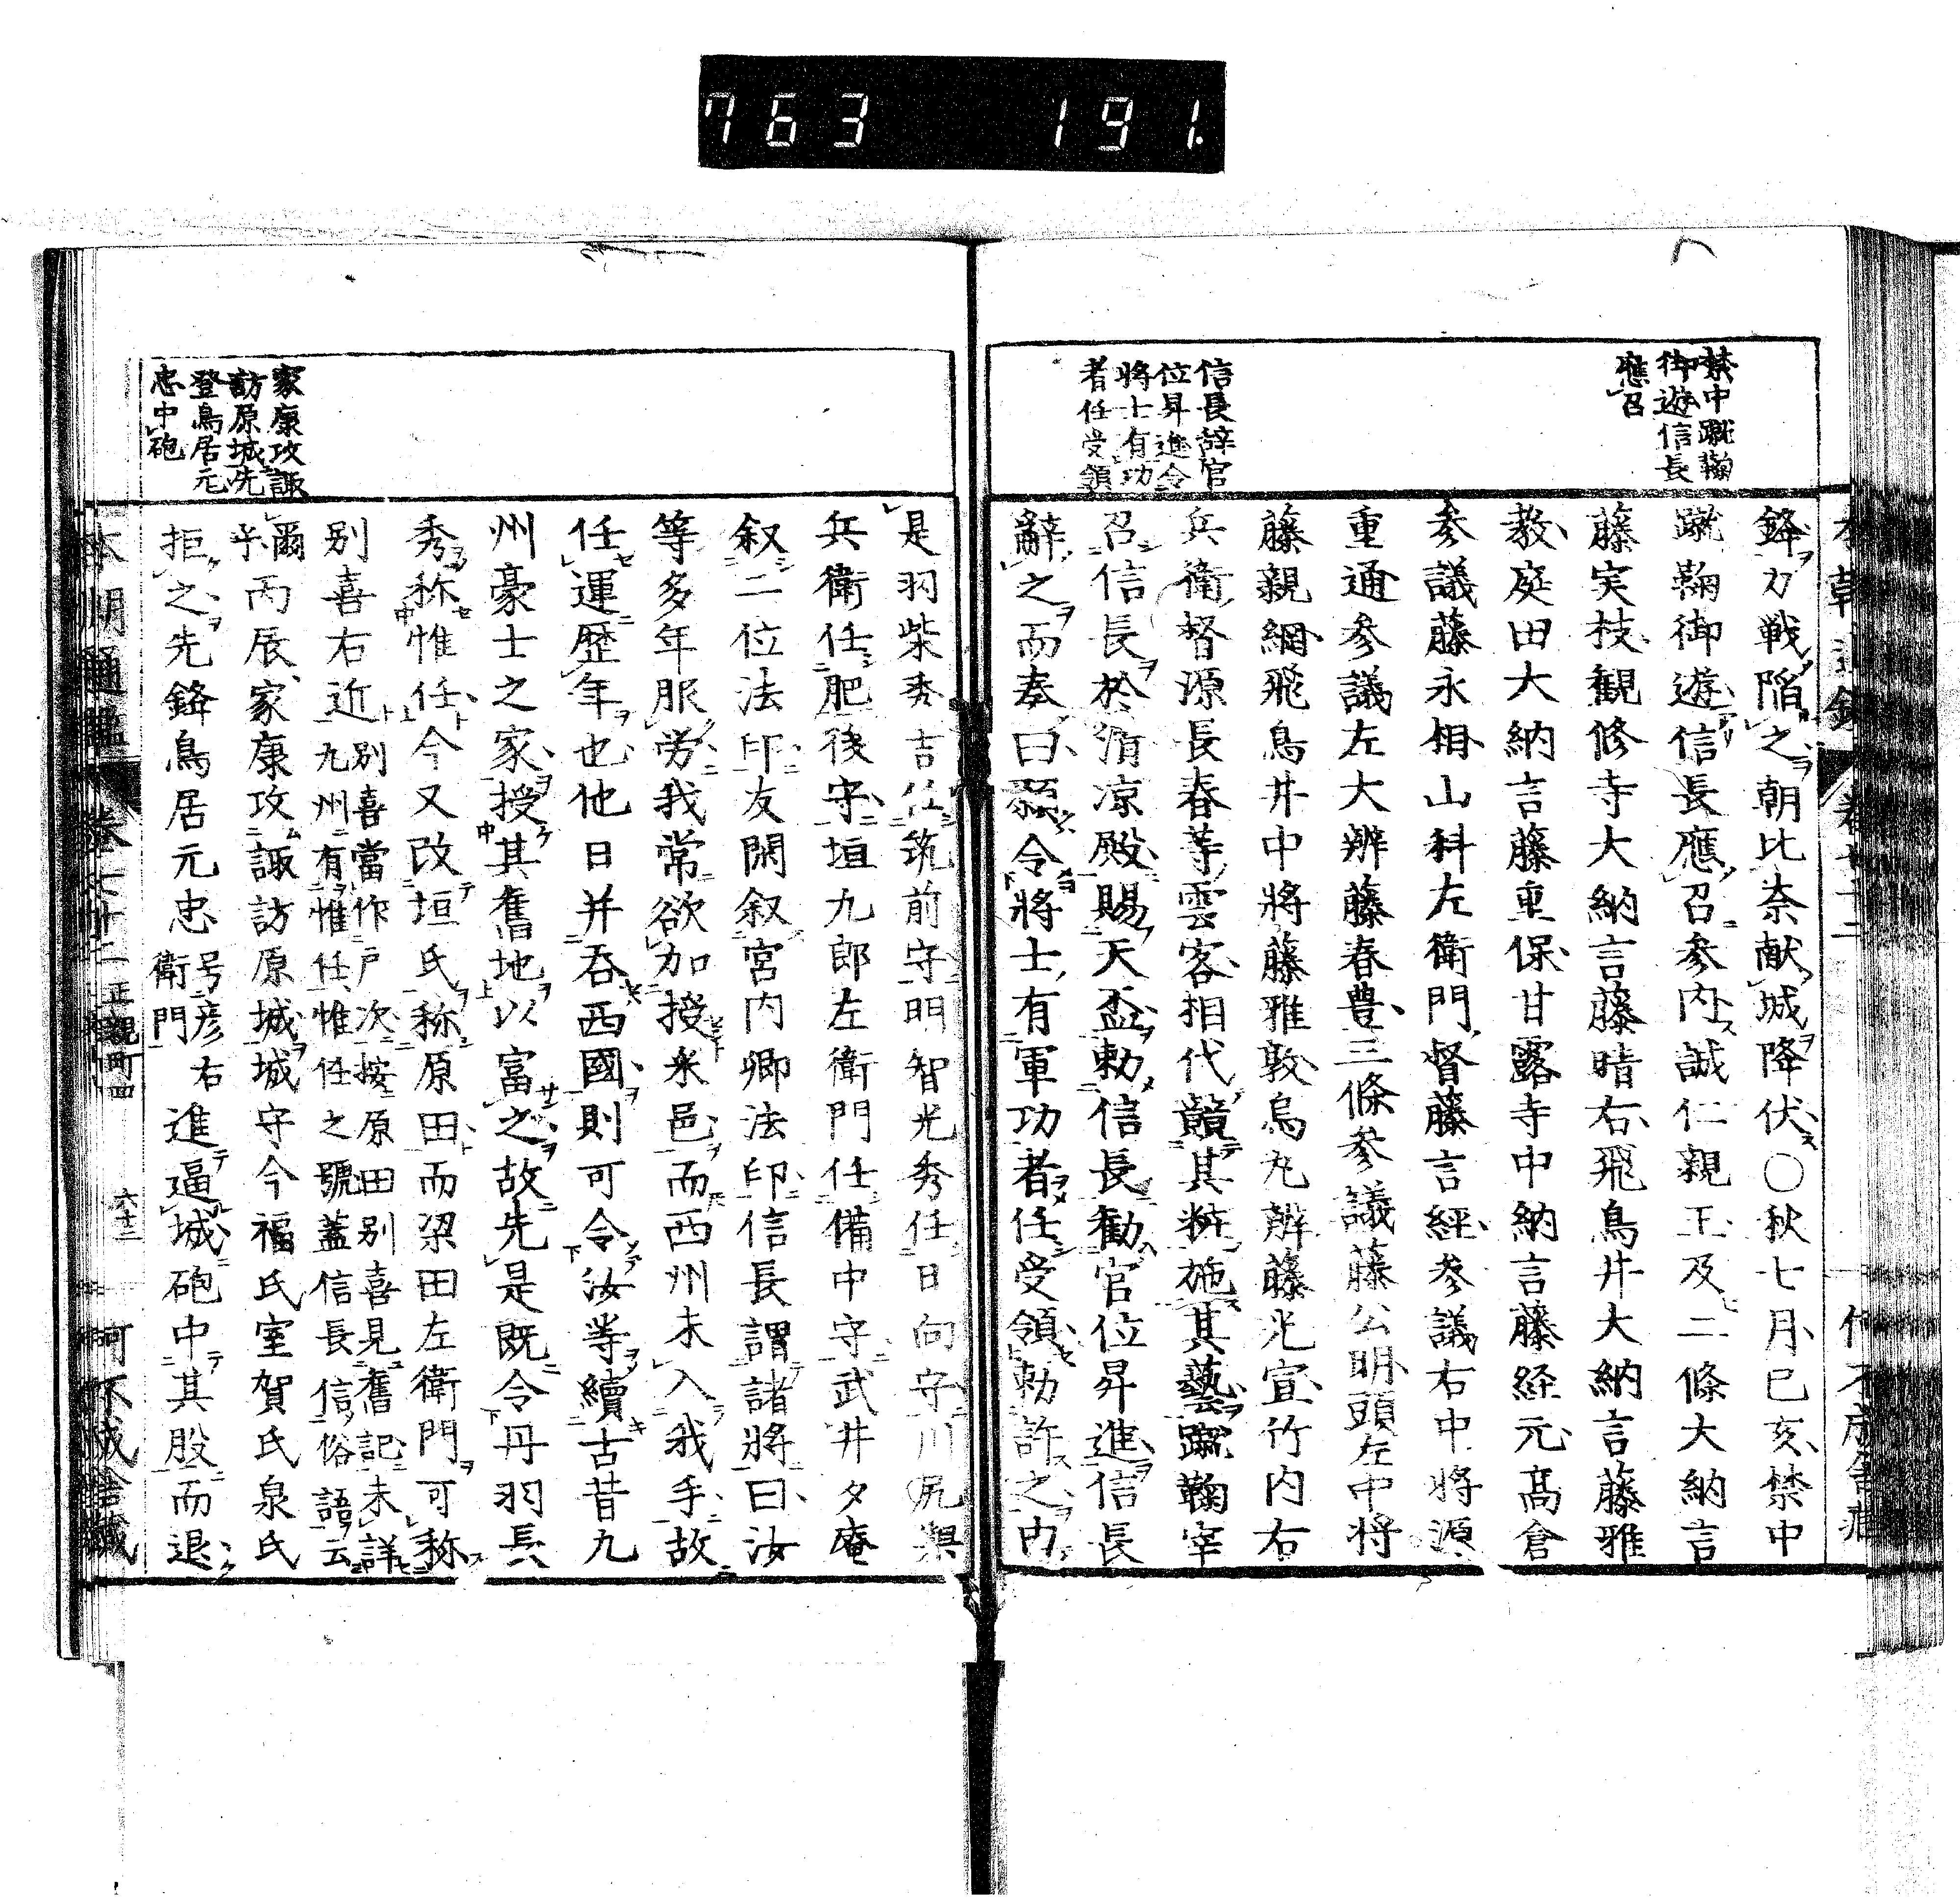 763 191.
禁中蹴鞠
御遊信長
應召
信長辞官
位昇進令
將士有功
者任受領
鋒力戦陷之朝比奈献城降伏〇秋七月己亥禁中
蹴鞠御遊信長應召参内誠仁親王及二條大納言
藤実枝觀修寺大納言藤晴右飛鳥井大納言藤雅
教庭田大納言藤重保甘露寺中納言藤経元髙倉
参議藤永相山科左衛門督藤言經参議右中将源
重通参議左大辨藤春豊三條参議藤公明頭左中将
藤親綱飛鳥井中將藤雅敦烏丸辨藤光宣竹内右
兵衛督源長春等雲客相代競其粧施其藝蹴鞠宰
召信長於清凉殿賜天盃勅信長勸官位昇進信長
辭之而奏曰願令將士有軍功者任受領勅許之由
家康攻諏
訪原城先
登鳥居元
忠中砲
是羽柴秀吉任筑前守明智光秀任日向守川尻與
兵衛任肥後守垣九郎左衛門任備中守武井夕庵
叙二位法印友閑叙宮内卿法印信長謂諸將曰汝
等多年服労我常欲加授釆邑而西州未入我手故
任運歴年也他日并呑西國則可令汝等續古昔九
州豪士之家授其舊地以富之故先是既令丹羽長
秀称惟任今又改垣氏称原田而梁田左衛門可称
別喜右近別喜當作戸次按原田別喜見舊記未詳
九州有惟任惟任之號蓋信長信俗語云
爾乎丙辰家康攻諏訪原城城守今福氏室賀氏泉氏
拒之先鋒鳥居元忠号彦右衛門進逼城砲中其股而退
本朝通鑑 卷七十二 正親町四 六十三